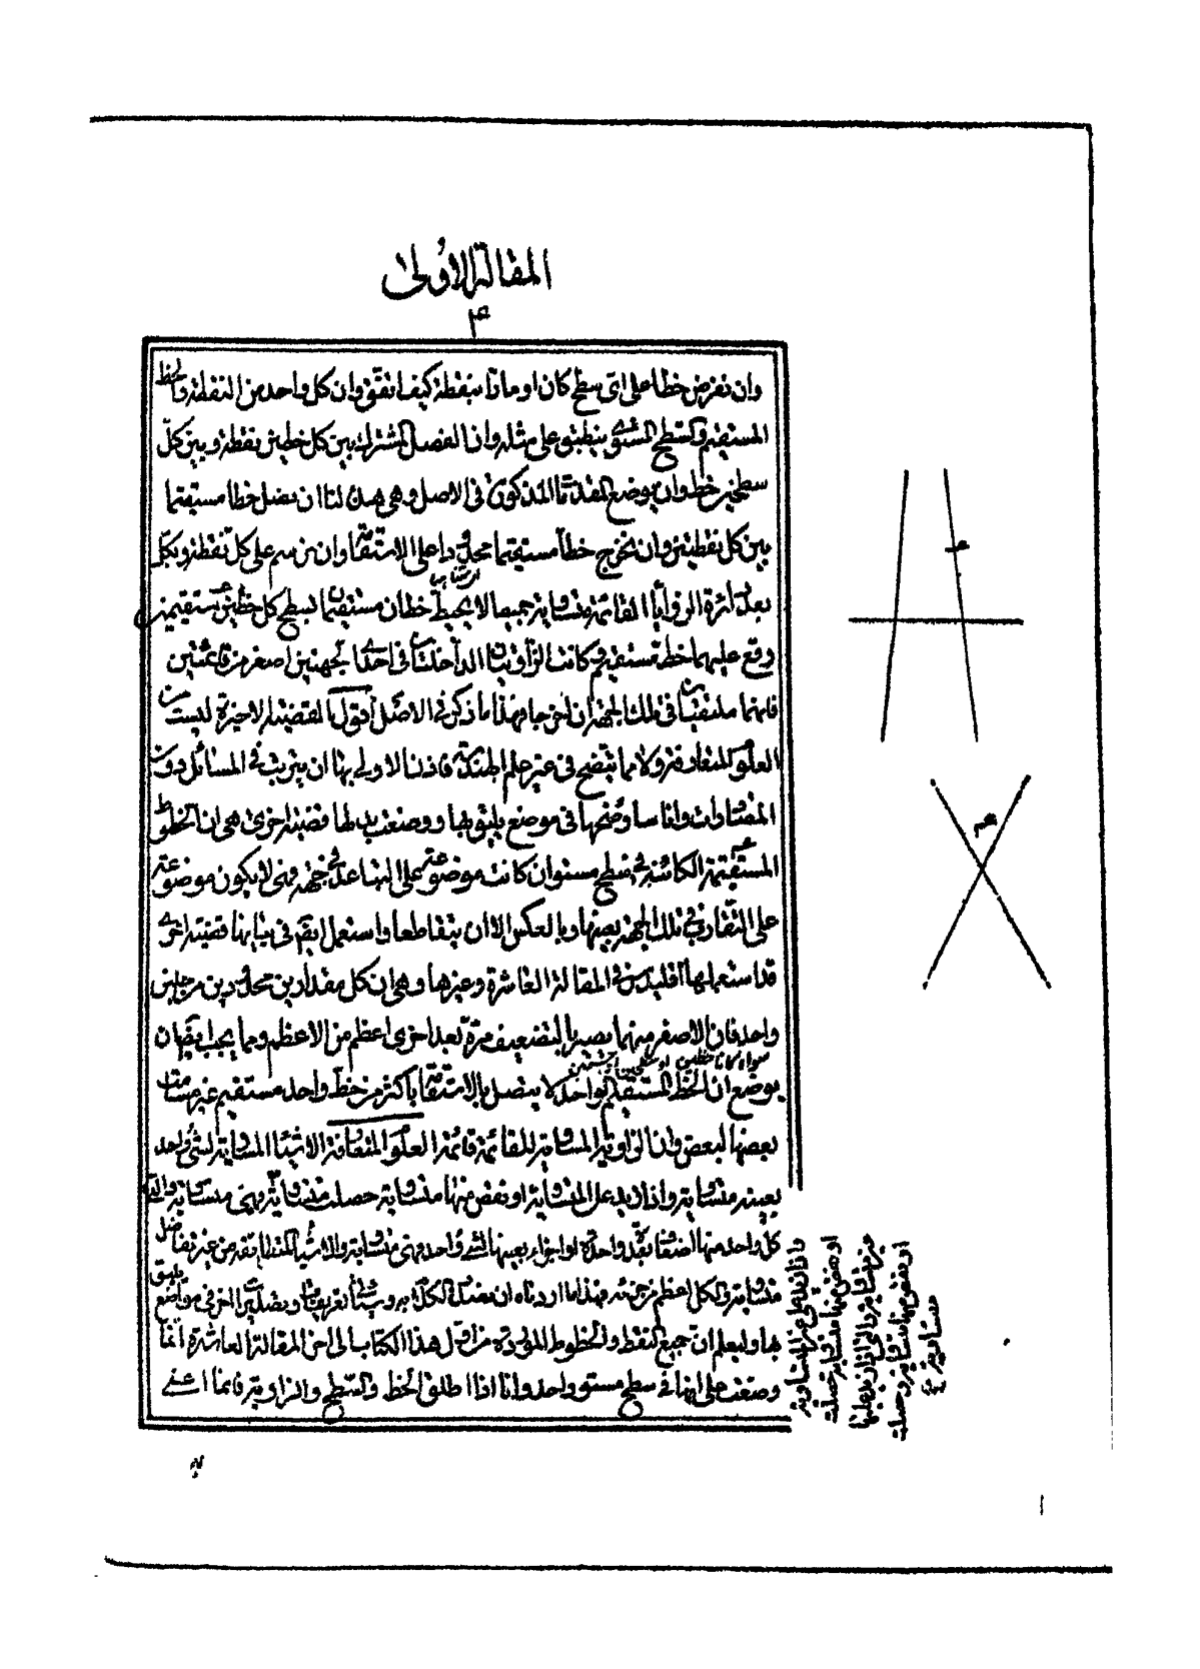 المقالة الاولى
٤
وان نفرض خطا على اى سطح كان او مارا بنقطة كيف اتفق وان كل واحد من النقطة والخط
المستقيم والسطح المستوى ينطبق على مثله وان الفصل المشترك بين كل خطين نقطة وبين كل
سطحين خط وان يوضع المقدمات المذكورة فى الاصل وهى هذه لنا ان نصل خطا مستقيما
بين كل نقطتين وان نخرج خطا مستقيما محدودا على الاستقامة وان نرسم على كل نقطة وبكل
بعد دائرة الزوايا القائمة متساوية جميعا لا يحيط خطان مستقيمان بسطح كل خطين مستقيمين
وقع عليهما خط مستقيم وكانت الزاويتان الداخلتان فى احدى الجهتين اصغر من قائمتين
فانهما يلتقيان فى تلك الجهة ان اخرجا فهذا ما ذكر فى الاصل اقول القضية الاخيرة ليست من
العلوم المتعارفة ولا مما يتضح فى غير علم الهندسة فاذن الاولى بها ان يترتب فى المسائل دون
المصادرات وانا ساوضحها فى موضع يليق بها ووضعت بدلها قضية اخرى هى ان الخطوط
المستقيمة الكائنة فى سطح مستو ان كانت موضوعة على التباعد فى جهة فهى لا يكون موضوعة
على التقارب فى تلك الجهة بعينها وبالعكس الا ان يتقاطعا واستعمل ايضا فى بيانها قضية اخرى
قد استعملها اقليدس فى المقالة العاشرة وغيرها وهى ان كل مقدارين محدودين من جنس
واحد فان الاصغر منهما يصير بالتضعيف مرة بعد اخرى اعظم من الاعظم ومما يجب ايضا ان
يوضع ان الخط المستقيم الواحد لا يتصل بالاستقامة باكثر من خط واحد مستقيم غير مسامت
بعضها لبعض وان الزاوية المساوية للقائمة قائمة العلوم المتعارفة الاشياء المساوية لشئ واحد
بعينه متساوية واذا زيد على المتساوية او نقص منها متساوية حصلت متساوية وهى متساوية والتى
كل واحد منها اضعاف بعدة واحدة او اجزاء بعينها لشئ واحد فهى متساوية والاشياء المنطابقة من غير تفاضل
متساوية والكل اعظم من جزئه فهذا ما اردناه ان
بها وليعلم ان جميع النقط والخطوط الموردة من اول هذا الكتاب الى اخر المقالة العاشرة انما
وضعت على انها فى سطح مستو واحد وانا اذا اطلق الخط والسطح والزاوية فانما اعنى
واذا زيد على غير المتساوية
او نقص منها متساوية حصلت
غير متساوية